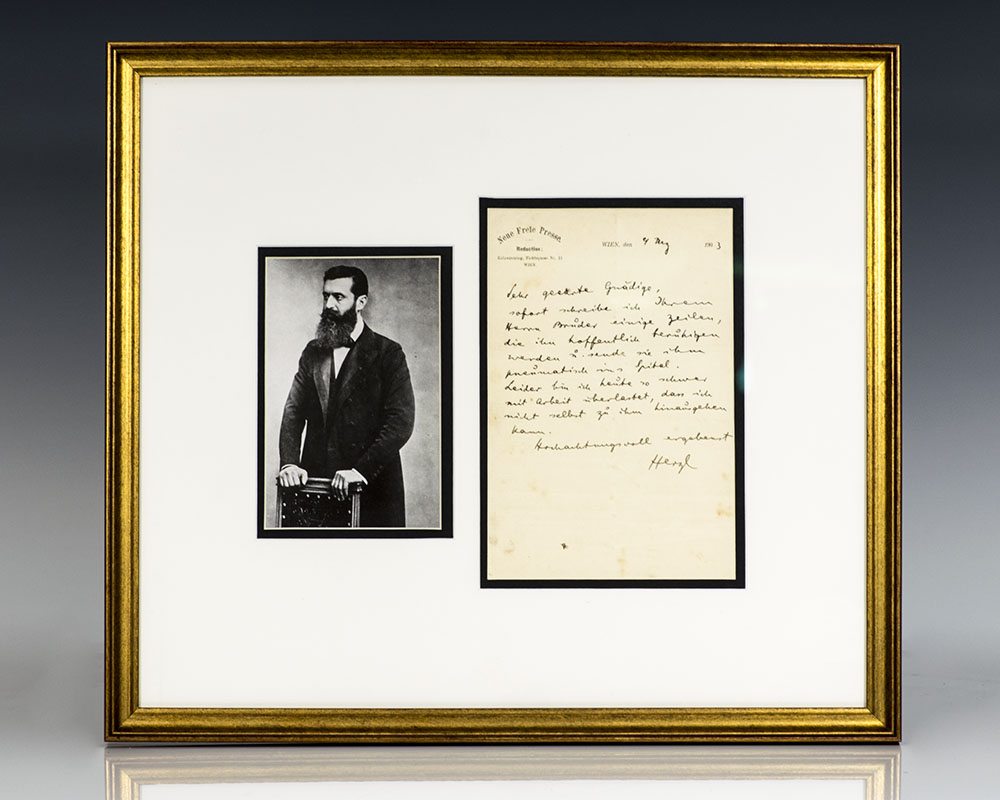 Neue Freie Presse.
Redaction:
Kolowratring, Fichtegasse Nr. 11
WIEN.
WIEN, den 4 190 3
Sehr geehrte Gnädige,
sofort schreibe ich Ihrem
Herrn Bruder einige Zeilen,
die ihn hoffentlich beruhigen
werden u. sende sie ihm
pneumatisch ins Spital.
Leider bin ich heute so schwer
mit Arbeit überlastet, dass ich
nicht selbst zu ihm hinausgehen
kann.
Hochachtungsvoll ergebenst
Herzl